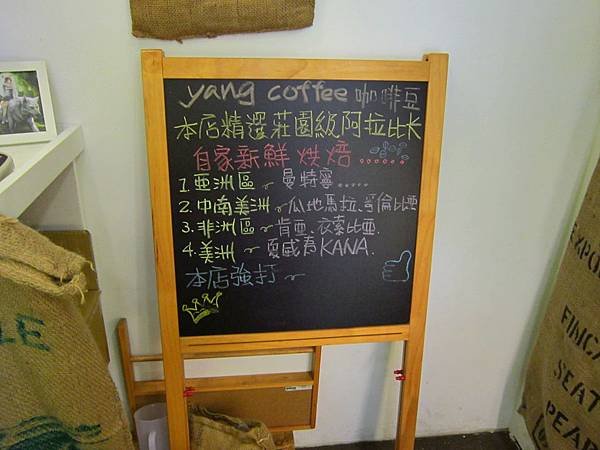 yang coffee 咖啡豆
本店精選莊園級阿拉比卡
自家新鮮烘焙......
1. 亞洲區~曼特寧.....
2. 中南美洲~瓜地馬拉、哥倫比亞
3. 非洲區~肯亞、衣索比亞.
4. 美洲~夏威夷KANA.
本店強打~
LE
EXPO
FINCA
SEAT
PEA